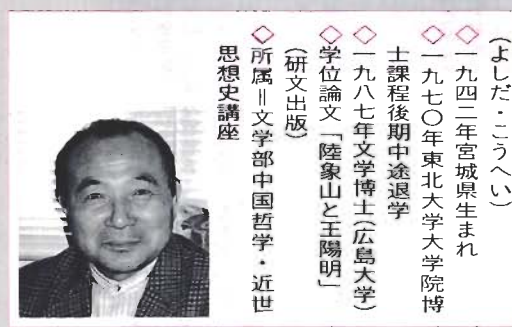 (よしだ・こうへい)
◇一九四二年宮城県生まれ
◇一九七〇年東北大学大学院博
士課程後期中途退学
◇一九八七年文学博士(広島大学)
学位論文「陸象山と王陽明」
(研文出版)
◇所属=文学部中国哲学・近世
思想史講座